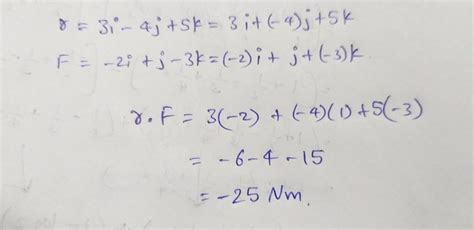 r = 3i - 4j + 5k = 3i + (-4)j + 5k
F = -2i + j - 3k = (-2)i + j + (-3)k
r . F = 3(-2) + (-4)(1) + 5(-3)
= -6 - 4 - 15
= -25 Nm.